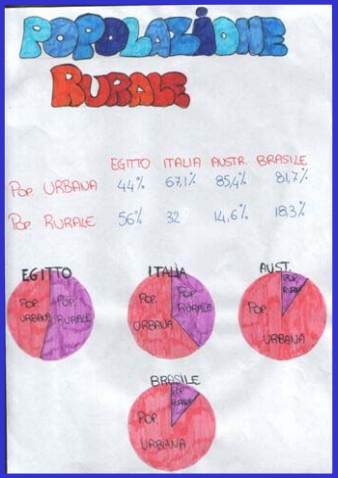 POPOLAZIONE
RURALE
EGITTO ITALIA AUSTR. BRASILE
POP. URBANA 44% 67,1% 85,4% 81,7%
POP. RURALE 56% 32 14,6% 18,3%
EGITTO ITALIA AUST.
POP. URBANA
POP. RURALE
POP. URBANA
POP. RURALE
POP. URBANA
POP. RURALE
BRASILE
POP. URBANA
POP. RURALE